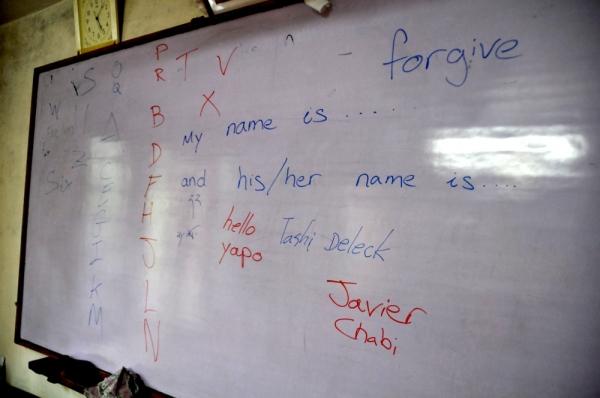 forgive
P T V
R X
B
D
F
H
J
L
N
My name is ......
and his/her name is ....
hello Tashi Deleck
yapo
Javier
Chabi
is
O
Q
W
Six
K
M